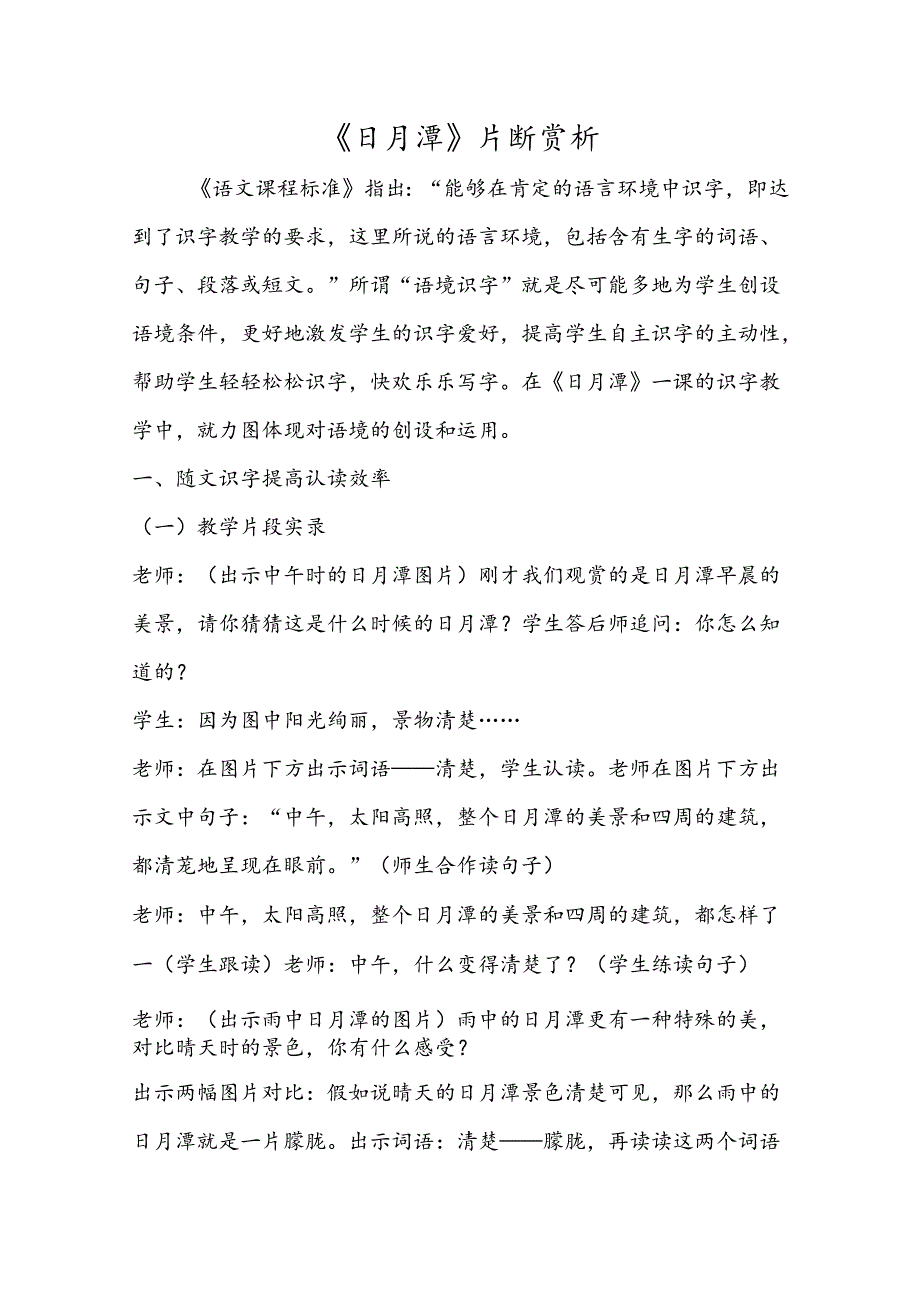 《日月潭》片断赏析
《语文课程标准》指出：“能够在肯定的语言环境中识字，即达
到了识字教学的要求，这里所说的语言环境，包括含有生字的词语、
句子、段落或短文。”所谓“语境识字”就是尽可能多地为学生创设
语境条件，更好地激发学生的识字爱好，提高学生自主识字的主动性，
帮助学生轻轻松松识字，快欢乐乐写字。在《日月潭》一课的识字教
学中，就力图体现对语境的创设和运用。
一、随文识字提高认读效率
（一）教学片段实录
老师：（出示中午时的日月潭图片）刚才我们观赏的是日月潭早晨的
美景，请你猜猜这是什么时候的日月潭？学生答后师追问：你怎么知
道的？
学生：因为图中阳光绚丽，景物清楚……
老师：在图片下方出示词语——清楚，学生认读。老师在图片下方出
示文中句子：“中午，太阳高照，整个日月潭的美景和四周的建筑，
都清茏地呈现在眼前。”（师生合作读句子）
老师：中午，太阳高照，整个日月潭的美景和四周的建筑，都怎样了
一（学生跟读）老师：中午，什么变得清楚了？（学生练读句子）
老师：（出示雨中日月潭的图片）雨中的日月潭更有一种特殊的美，
对比晴天时的景色，你有什么感受？
出示两幅图片对比：假如说晴天的日月潭景色清楚可见，那么雨中的
日月潭就是一片朦胧。出示词语：清楚——朦胧，再读读这两个词语